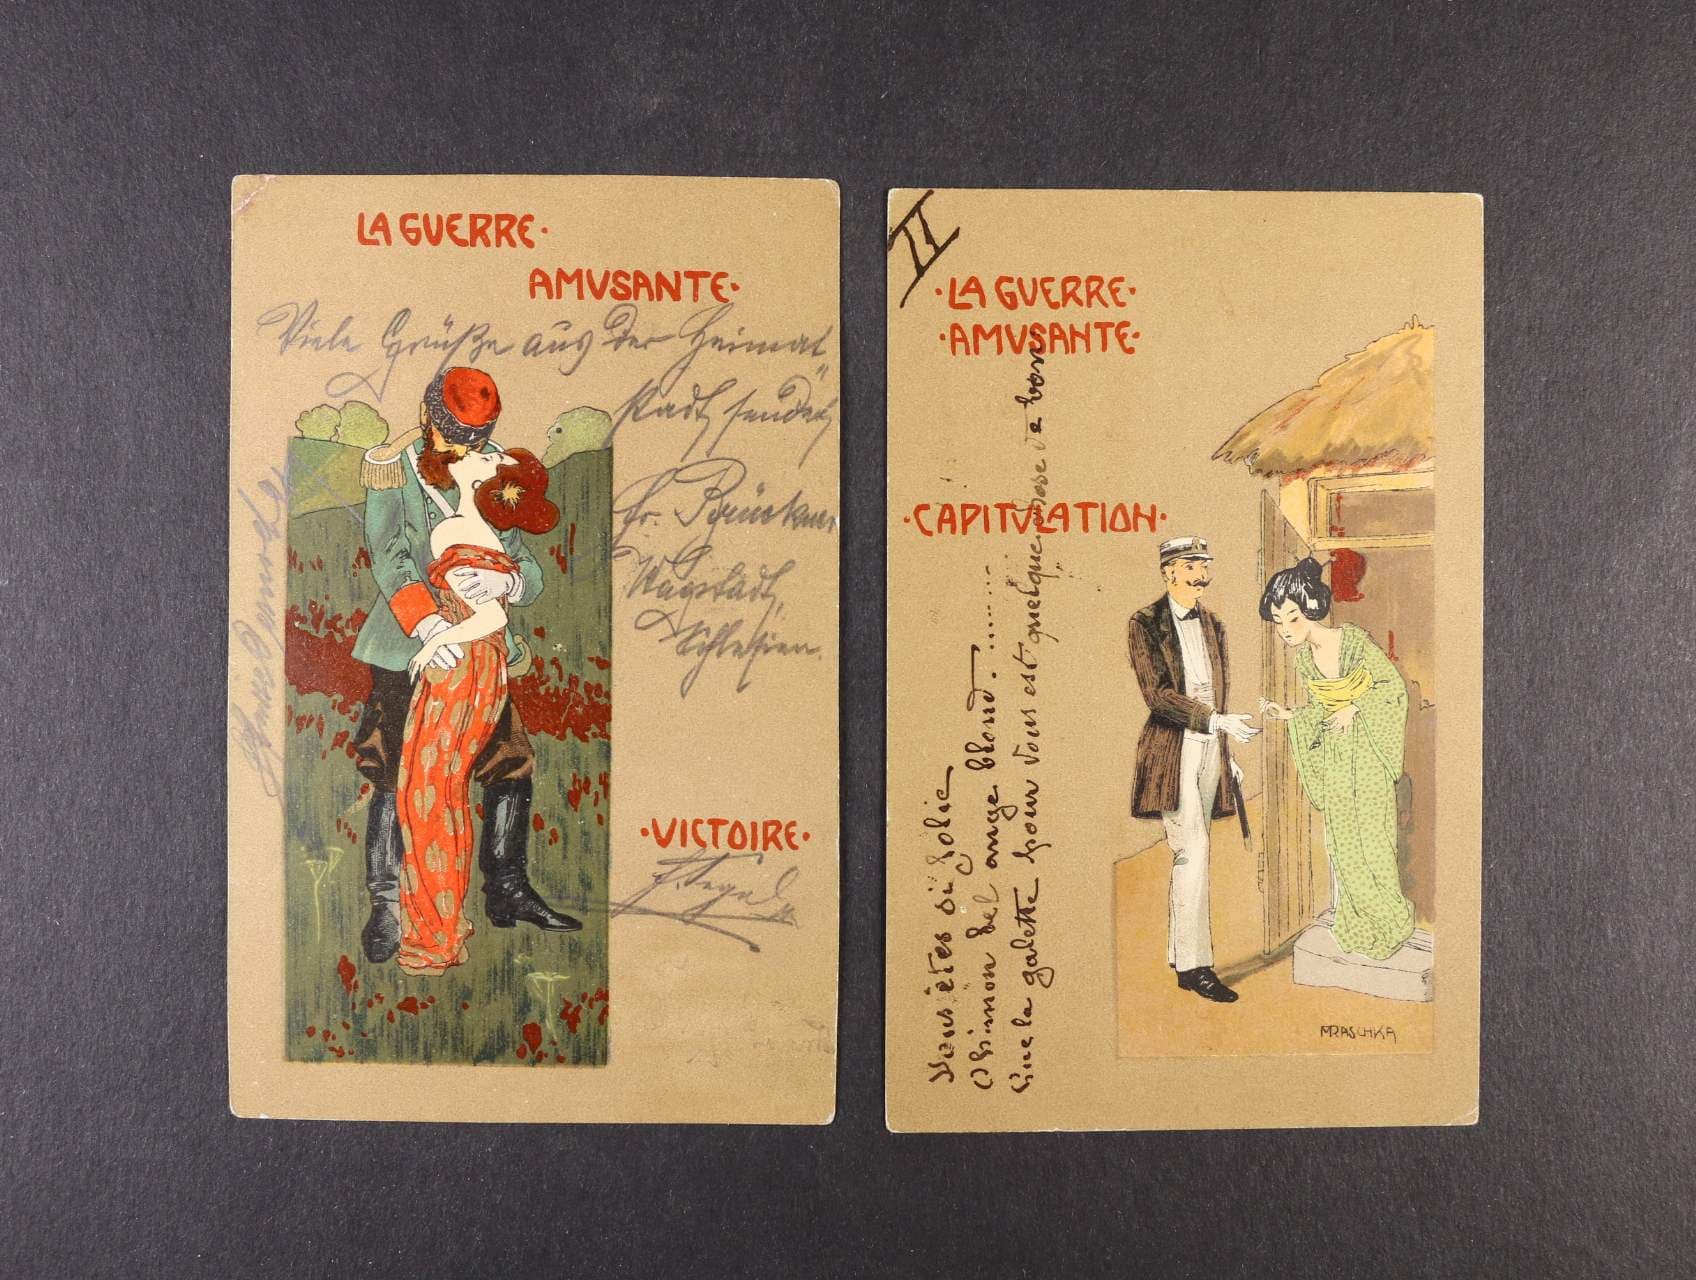 LA GUERRE·
AMUSANTE·
Viele Grüße aus der Heimat
stadt sendet
Fr. Brückner
Wagstadt,
Schlesien.
·VICTOIRE·
II
·LA GUERRE·
·AMUSANTE·
·CAPITULATION·
Vous êtes si jolie
O mon bel ange blond........
que la galette pour vous est quelque chose de bon
M.RASCHKA